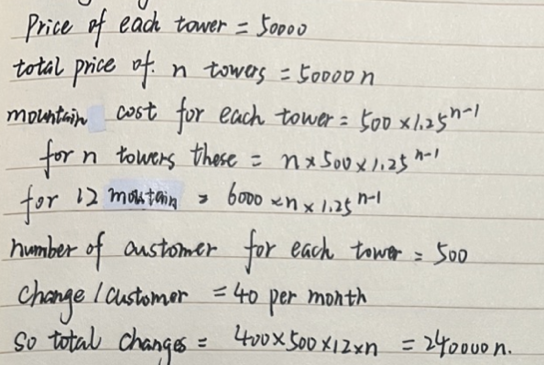 Price of each tower = 50000
total price of n towers = 50000 n
mountain cost for each tower = 500 × 1.25^{n-1}
for n towers these = n × 500 × 1.25^{n-1}
for 12 mountain = 6000 × n × 1.25^{n-1}
number of customer for each tower = 500
Change / Customer = 40 per month
So total changes = 400 × 500 × 12 × n = 240000 n.